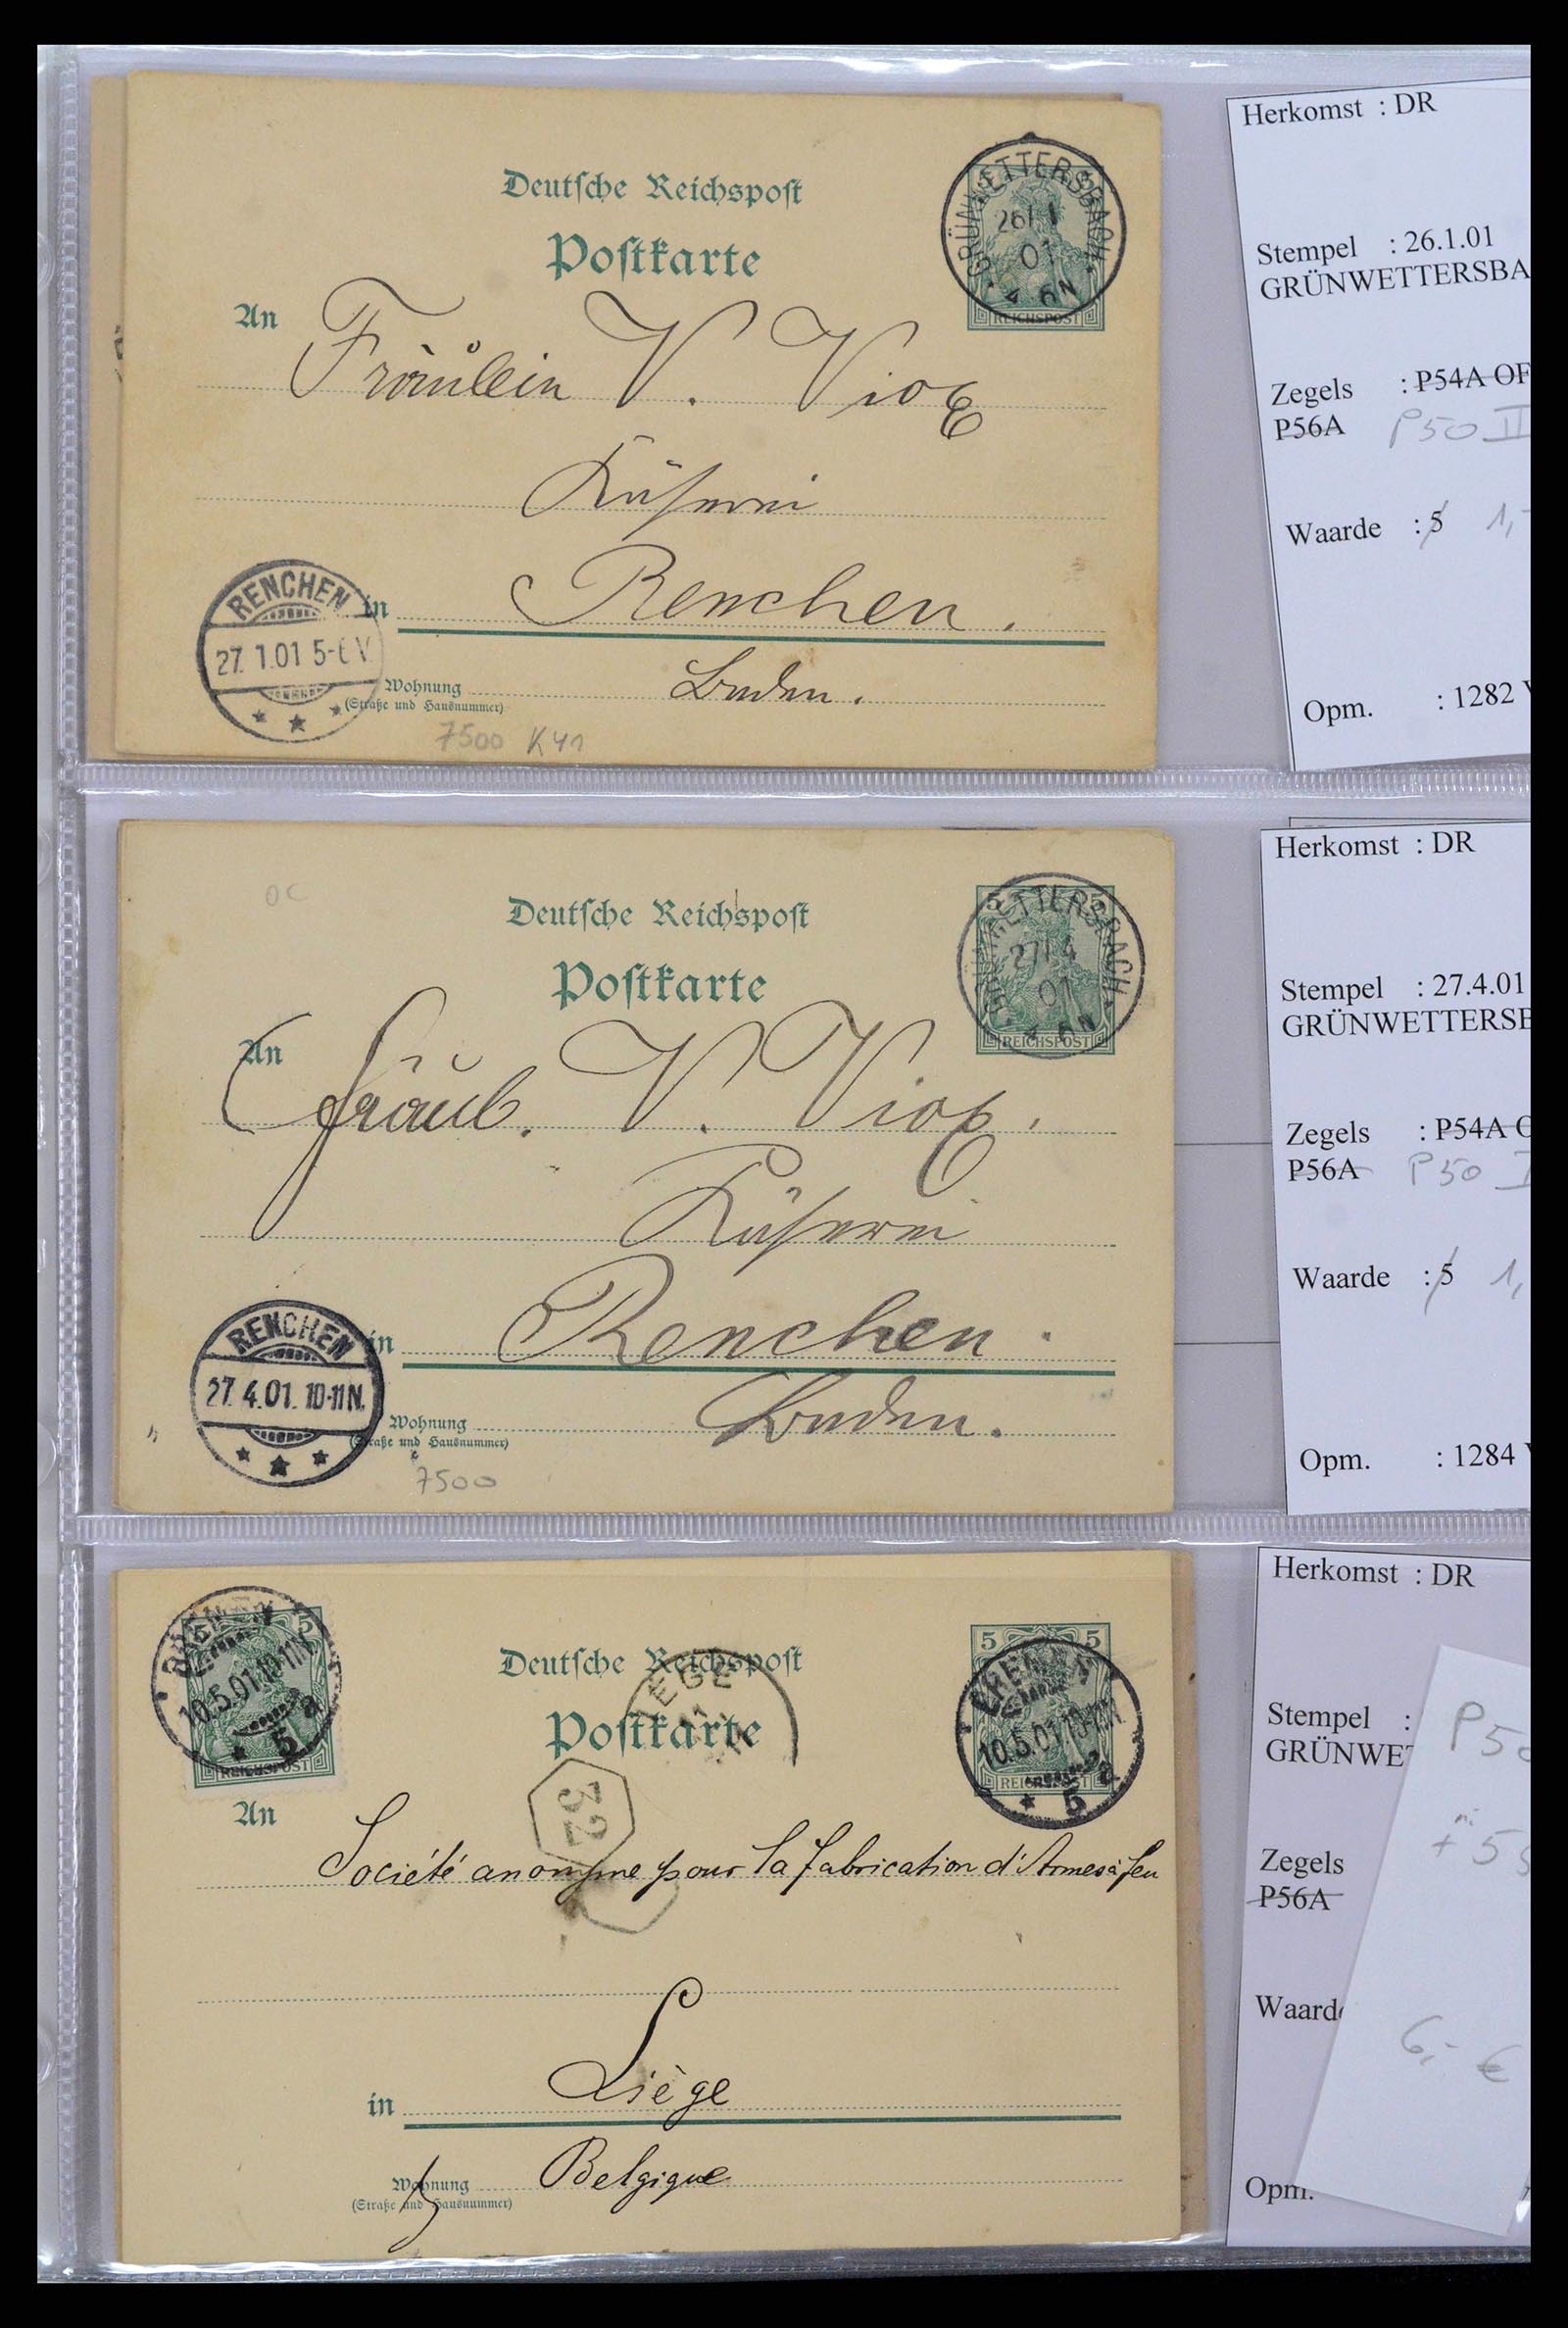 Deutsche Reichspost
Postkarte
GRÜNWETTERSBACH
26/ 1
01
4-6N
REICHSPOST
An Fräulein V. Viox
Küferei
in Renchen.
RENCHEN
27. 1.01 5-6 V.
Wohnung Baden.
(Straße und Hausnummer)
7500 K41
Herkomst : DR
Stempel : 26.1.01
GRÜNWETTERSBA
Zegels : P54A OF
P56A P50 II
Waarde : 5 1,-
Opm. : 1282 V
OC
Deutsche Reichspost
Postkarte
5 5
GRÜNWETTERSBACH
27/ 4
01
4-6N
REICHSPOST
An Fräul. V. Viox.
Küferei
in Renchen.
RENCHEN
27. 4.01. 10-11N.
Wohnung Baden.
(Straße und Hausnummer)
7500
Herkomst : DR
Stempel : 27.4.01
GRÜNWETTERSB
Zegels : P54A O
P56A P50 I
Waarde : 5 1,
Opm. : 1284 V
BREMEN
5
10.5.01.10-11V.
* 5 a
REICHSPOST
Deutsche Reichspost
Postkarte
LIEGE
32
5 5
BREMEN
10.5.01.10-11V.
* 5 a
REICHSPOST
An
Société anonyme pour la fabrication d'Armes à feu
in Liège
Wohnung Belgique
(Straße und Hausnummer)
Herkomst : DR
Stempel :
GRÜNWET
Zegels
P56A
Waarde
Opm.
P50
+ 55
6,- €